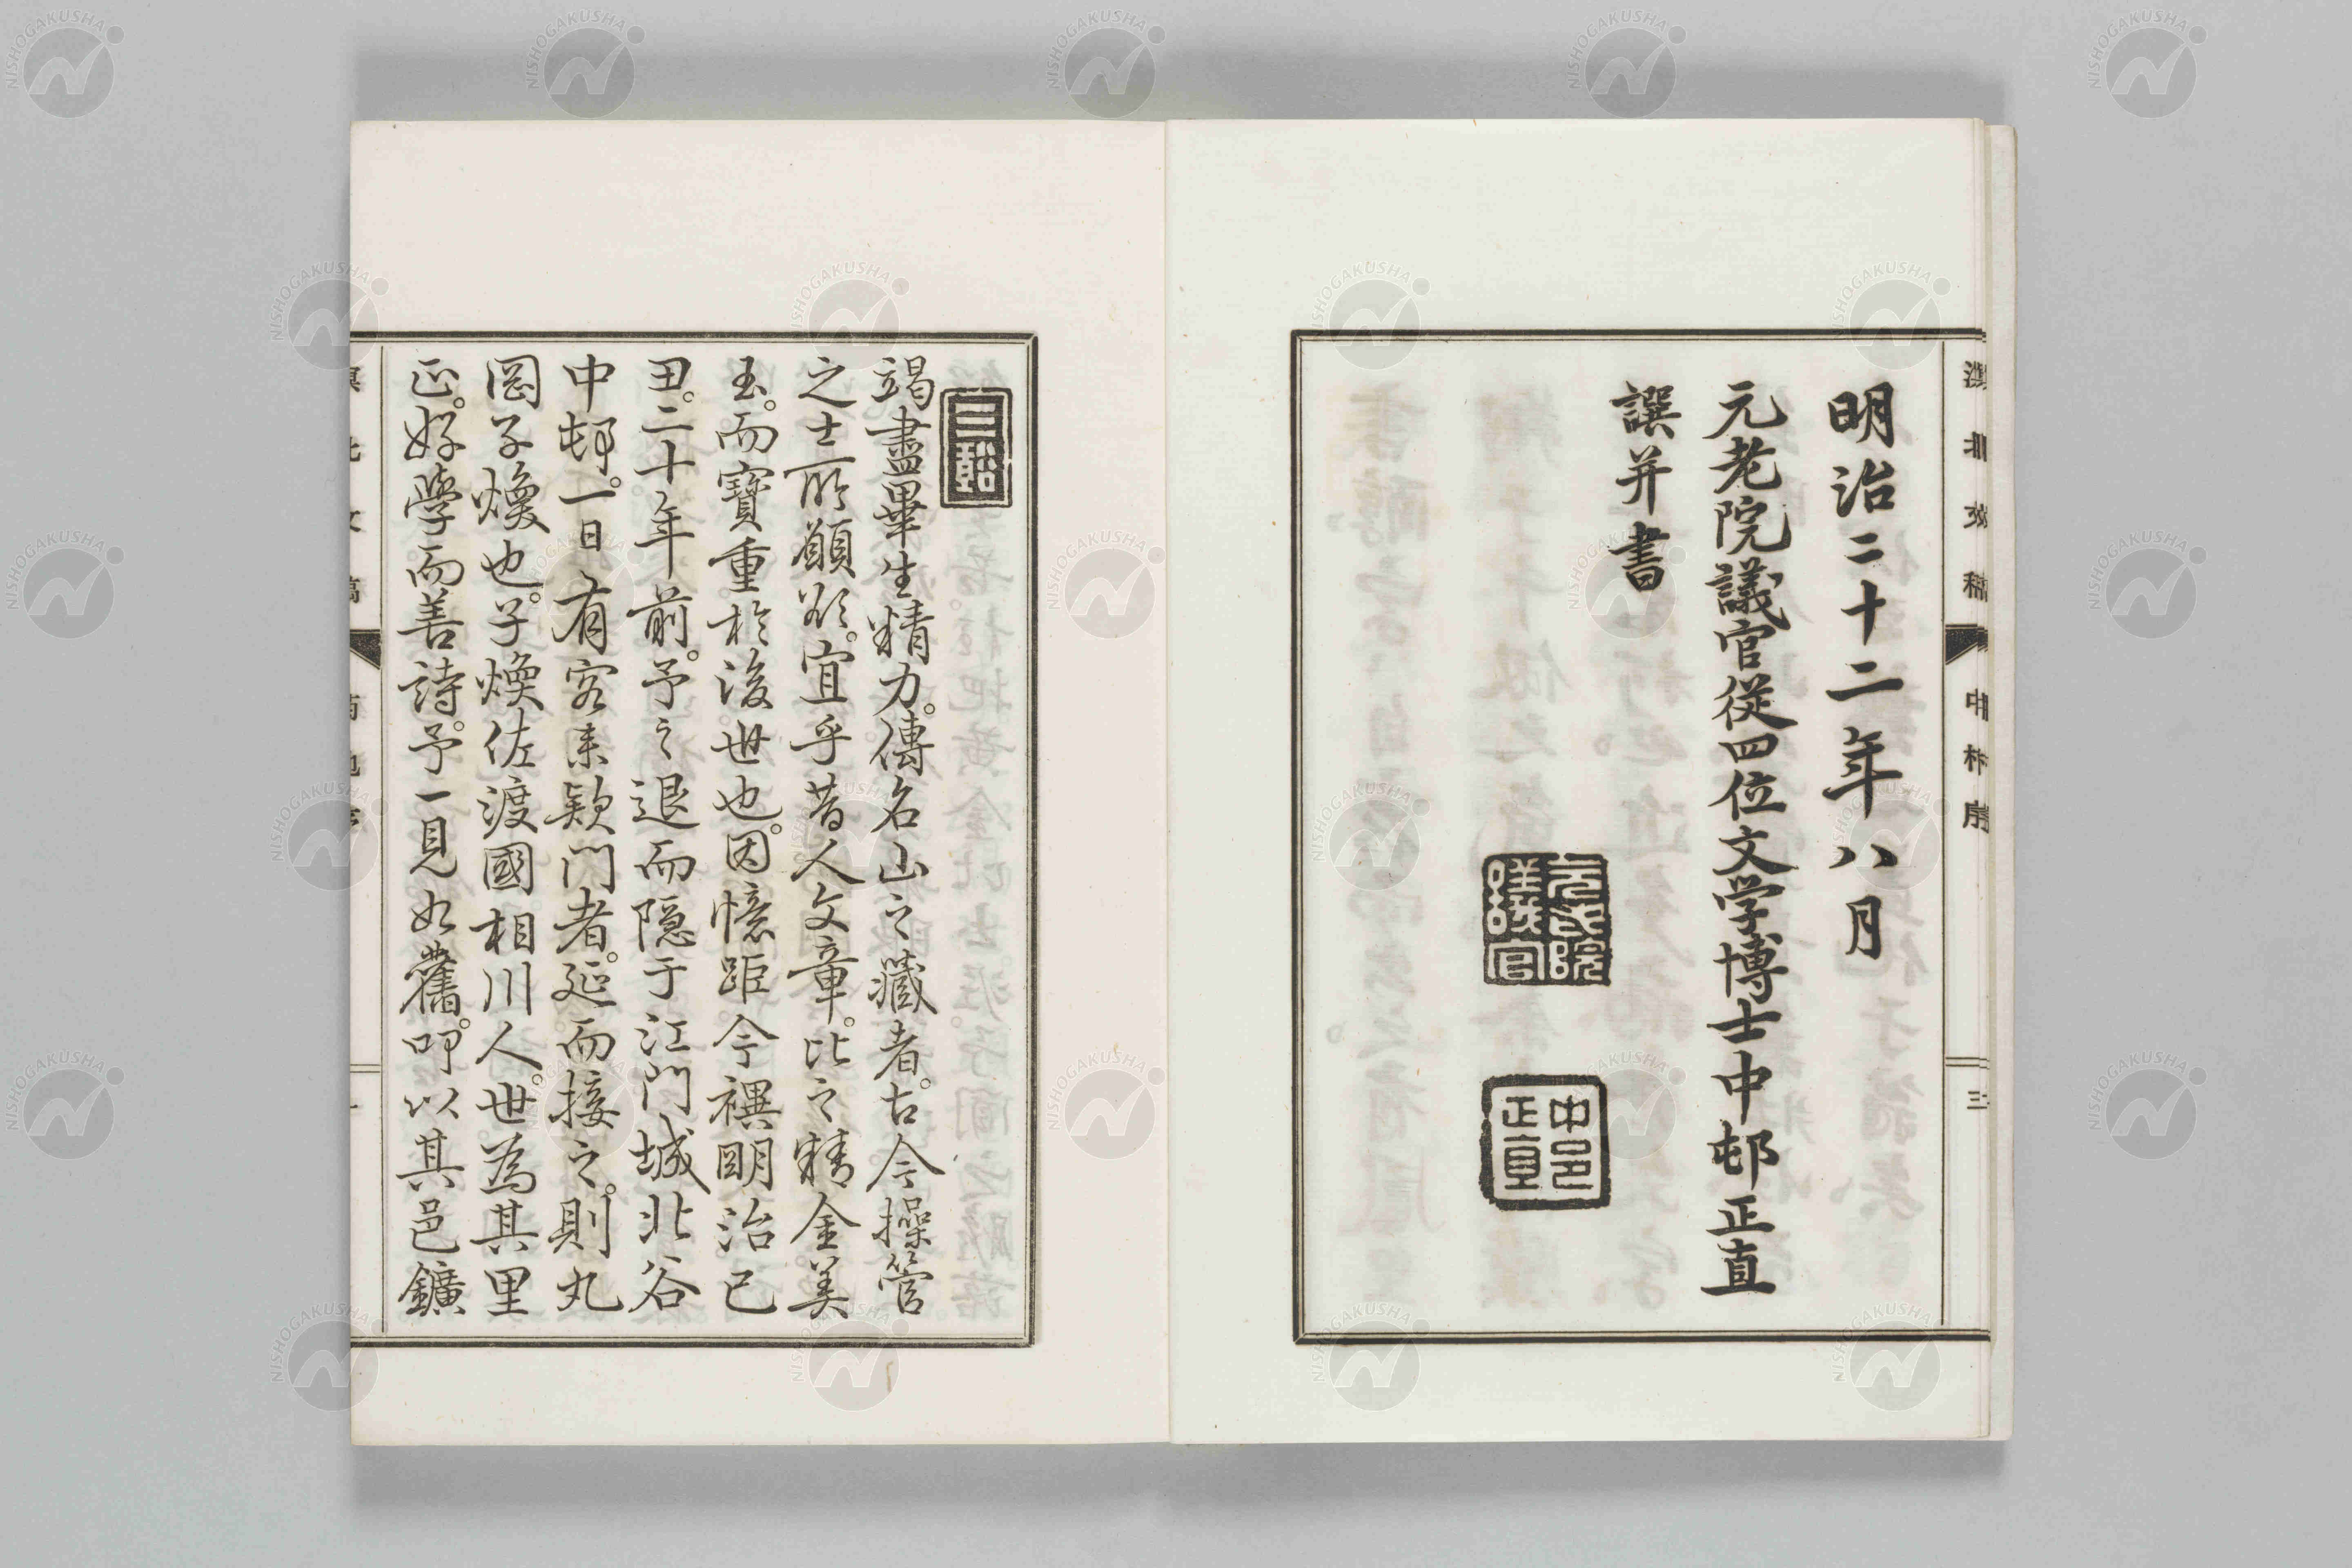 明治二十二年八月
元老院議官從四位文学博士中邨正直
譔并書
元老院議官
中邨正直
中村序
三
竭盡畢生精力。傳名山之藏者。古今操管
之士所願欲。宜乎昔人文章。比之精金美
玉。而寶重於後世也。因憶距今禩明治己
丑。二十年前。予之退而隱于江門城北谷
中邨。一日有客来欵門者。延而接之。則丸
岡子煥也。子煥佐渡國相川人。世為其里
正。好學而善詩。予一見如舊。叩以其邑鑛
NISHOGAKUSHA